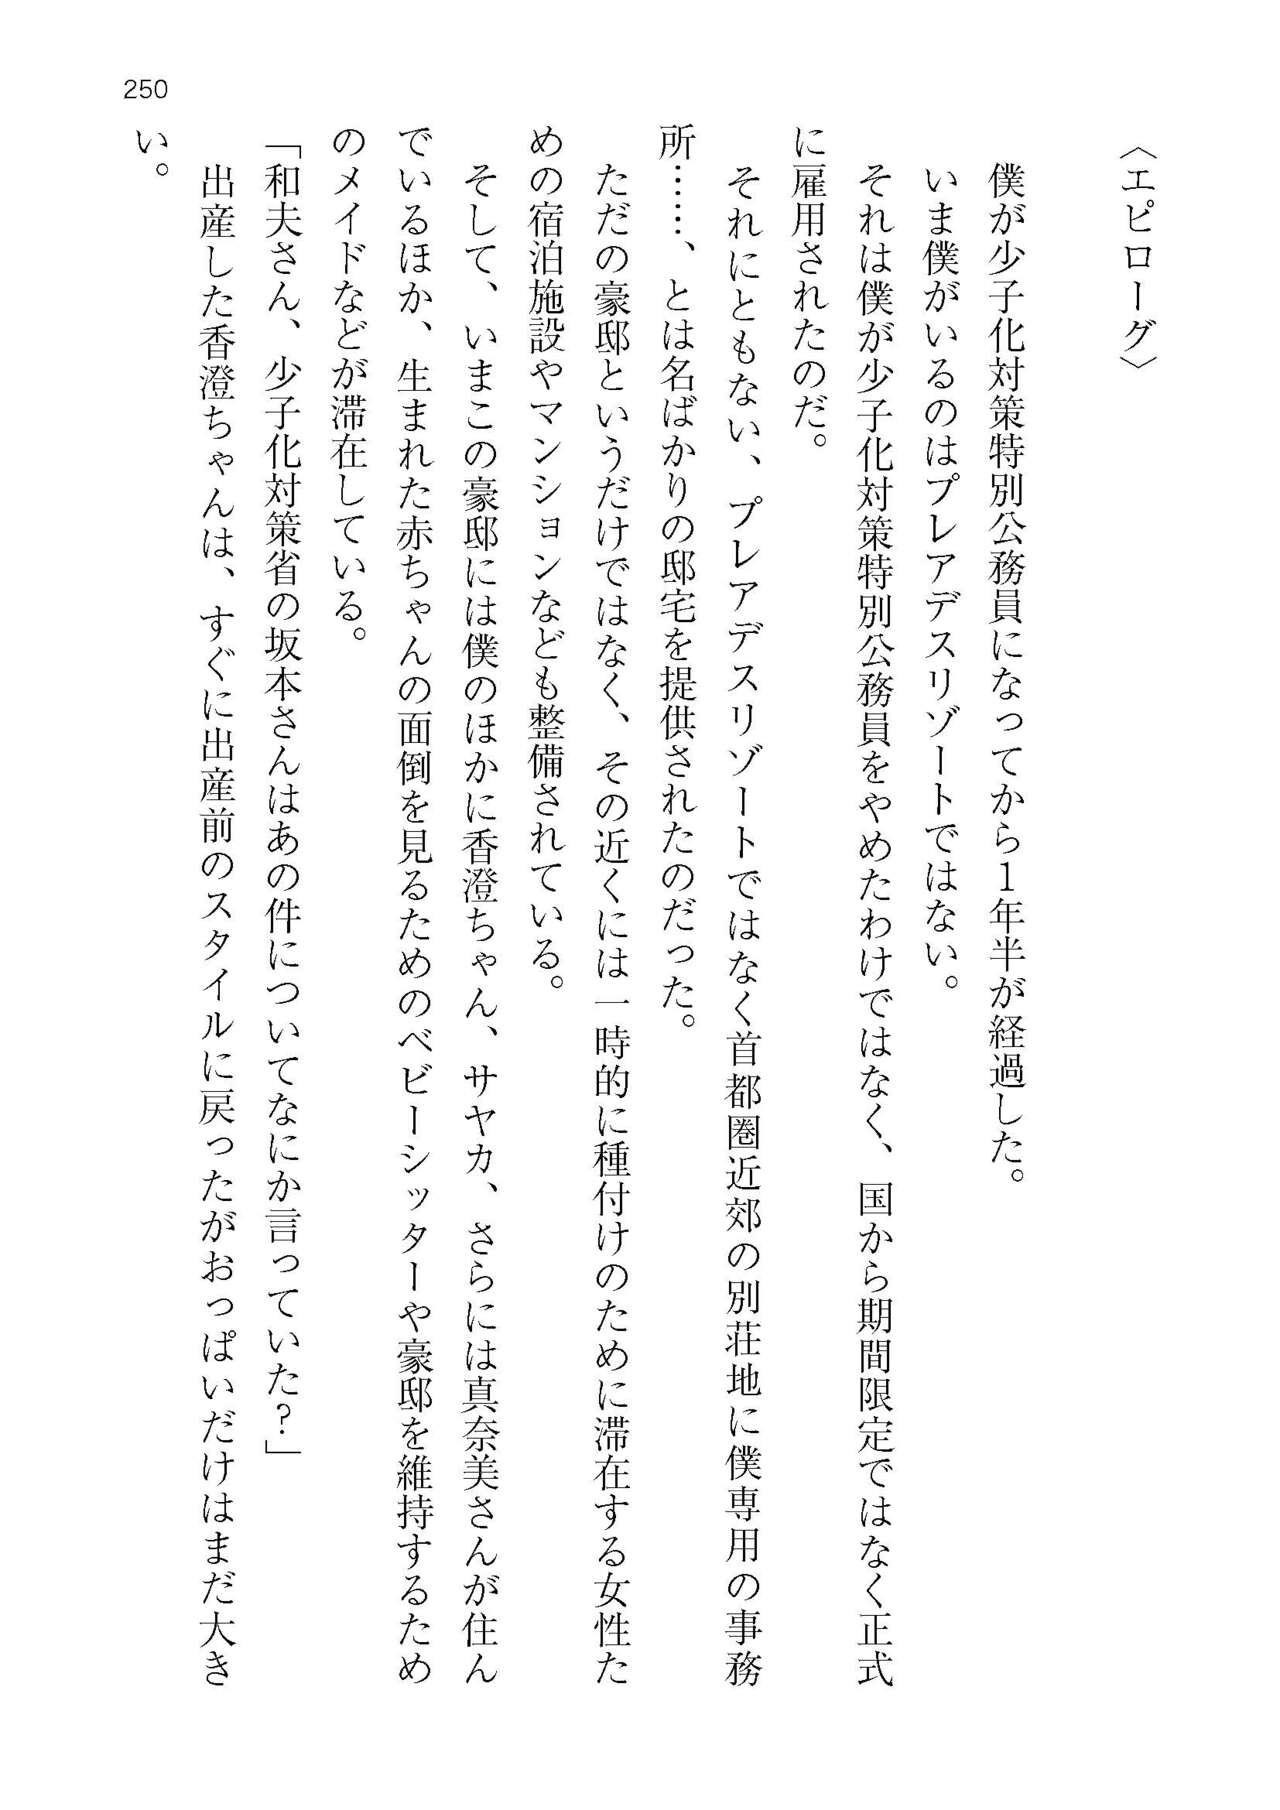 250
〈エピローグ〉
僕が少子化対策特別公務員になってから1年半が経過した。
いま僕がいるのはプレアデスリゾートではない。
それは僕が少子化対策特別公務員をやめたわけではなく、国から期間限定ではなく正式
に雇用されたのだ。
それにともない、プレアデスリゾートではなく首都圏近郊の別荘地に僕専用の事務
所……、とは名ばかりの邸宅を提供されたのだった。
ただの豪邸というだけではなく、その近くには一時的に種付けのために滞在する女性た
めの宿泊施設やマンションなども整備されている。
そして、いまこの豪邸には僕のほかに香澄ちゃん、サヤカ、さらには真奈美さんが住ん
でいるほか、生まれた赤ちゃんの面倒を見るためのベビーシッターや豪邸を維持するため
のメイドなどが滞在している。
「和夫さん、少子化対策省の坂本さんはあの件についてなにか言っていた?」
出産した香澄ちゃんは、すぐに出産前のスタイルに戻ったがおっぱいだけはまだ大き
い。